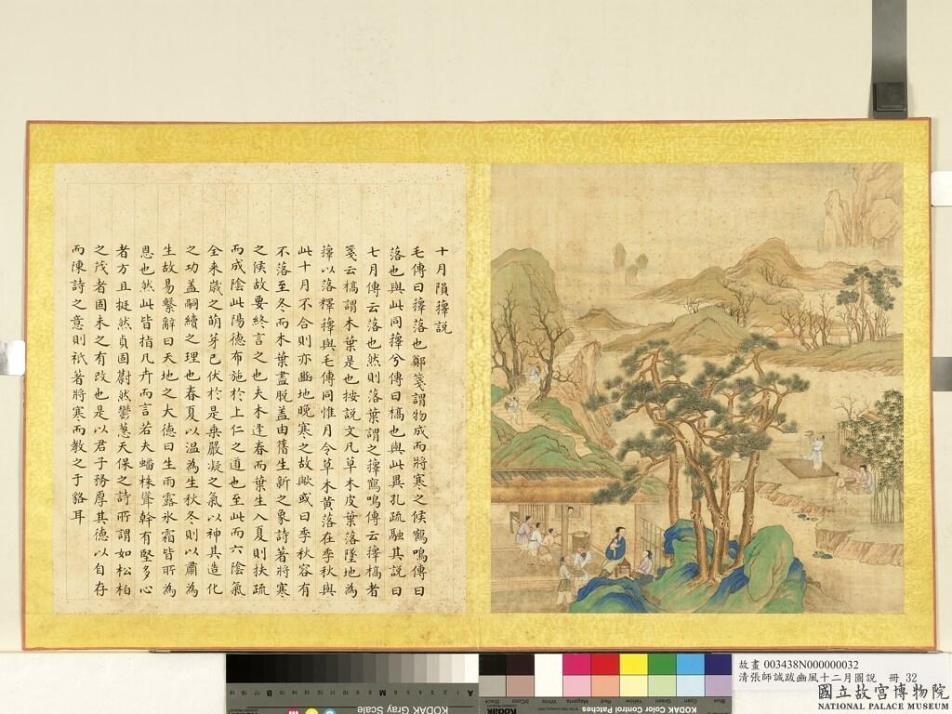 十月隕蘀說
毛傳曰蘀落也鄭箋謂物成而將寒之候鶴鳴傳曰
落也與此同蘀兮傳曰槁也與此異孔疏融其說曰
七月傳云落也然則落葉謂之蘀鶴鳴傳云蘀槁者
箋云槁謂木葉是也按說文凡草木皮葉落墮地為
蘀以落釋蘀與毛傳同惟月令草木黃落在季秋與
此十月不合則亦豳地晚寒之故歟或曰季秋容有
不落至冬而木葉盡脫蓋由舊生新之象詩著將寒
之候故要終言之也夫木逢春而葉生入夏則扶疏
而成陰此陽德布施於上仁之道也至此而六陰氣
全來歲之萌芽已伏於是乘嚴凝之氣以神其造化
之功蓋嗣續之理也春夏以溫為生秋冬則以肅為
生故易繫辭曰天地之大德曰生雨露氷霜皆所為
恩也然此皆指凡卉而言若夫蟠株聳幹有堅多心
者方且挺然貞固蔚然鬱蔥天保之詩所謂如松柏
之茂者固未之有改也是以君子務厚其德以自存
而陳詩之意則祇著將寒而教之于貉耳
KODAK Gray Scale
KODAK Color Control Patches
故畫 003438N000000032
清張師誠跋豳風十二月圖說 冊 32
國立故宮博物院
NATIONAL PALACE MUSEUM